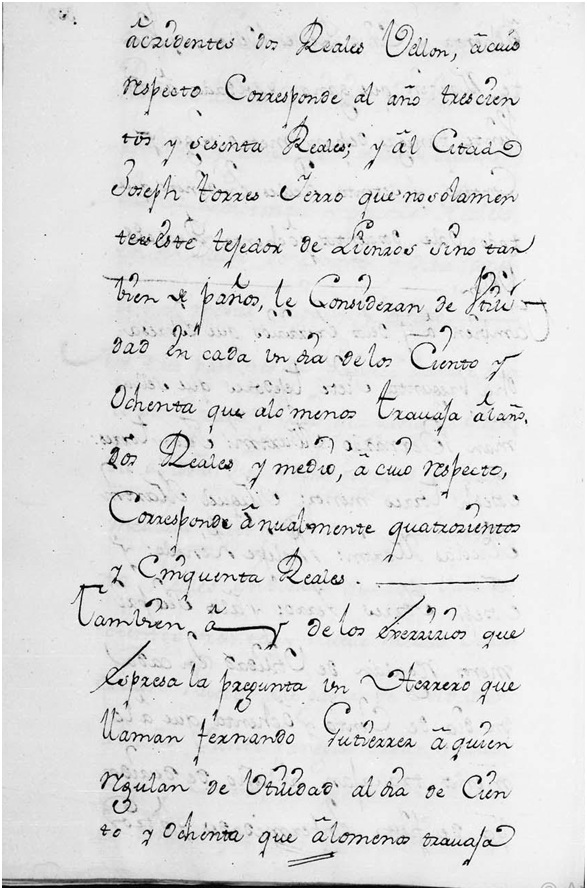 aczidentes dos Reales Vellon, à cuio
respecto Corresponde al año trescien
tos y sesenta Reales; y àl Citado
Joseph torres Ferro que no solamen
te es este tejedor de Lienzos sino tan
bien de paños, le Consideran de Vtili
dad en cada un dia de los Ciento y
Ochenta que alo menos travaja àl año,
dos Reales y medio, à cuio respecto,
Corresponde ànualmente quatrozientos
y Cinquenta Reales.
Tambien, ay de los exerzizios que
expresa la pregunta un Herrero que
llaman fernando Gutierrez à quien
regulan de Vtilidad al dia de Cien
to y Ochenta que àlomenos travaja